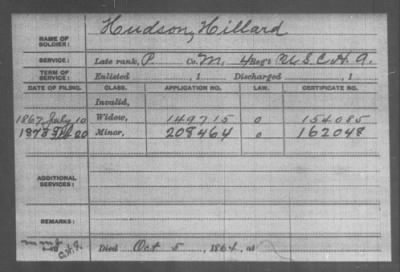 NAME OF SOLDIER: Hudson, Hillard
SERVICE: Late rank, P Co. M, 4 Reg't U.S.C.H.A.
TERM OF SERVICE: Enlisted , 1 Discharged , 1
DATE OF FILING. CLASS. APPLICATION NO. LAW. CERTIFICATE NO.
Invalid,
1867 July 10 Widow, 149715 0 154085
1873 20 Minor, 208464 0 162048
ADDITIONAL SERVICES:
REMARKS:
Died Oct 5, 1864, at